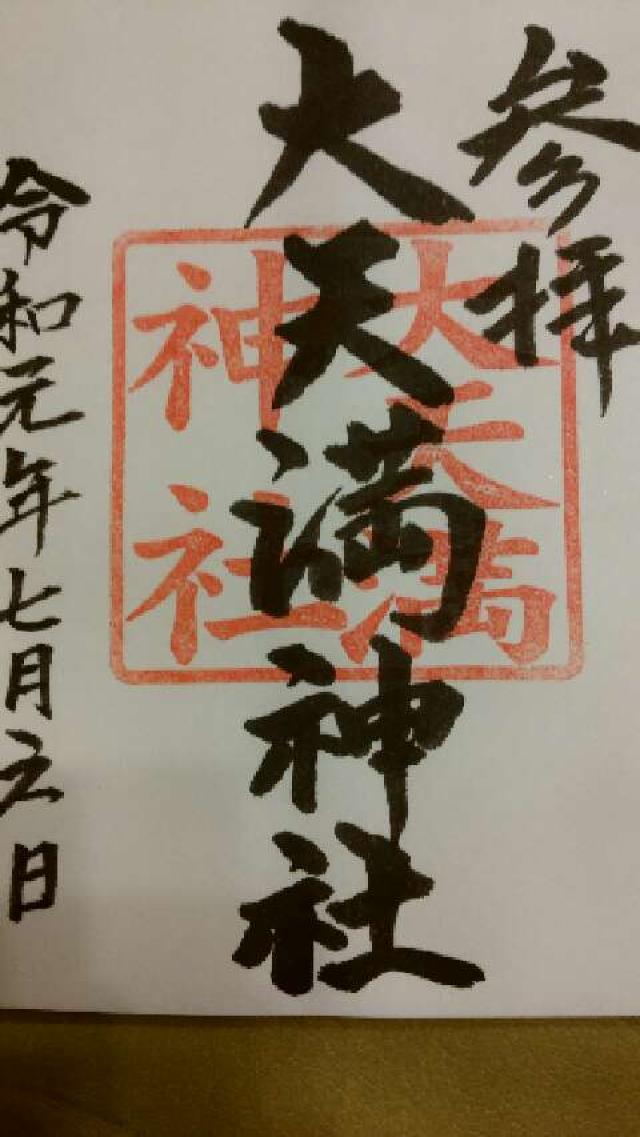 参拝
大天満神社
大天満
神社
令和元年七月六日